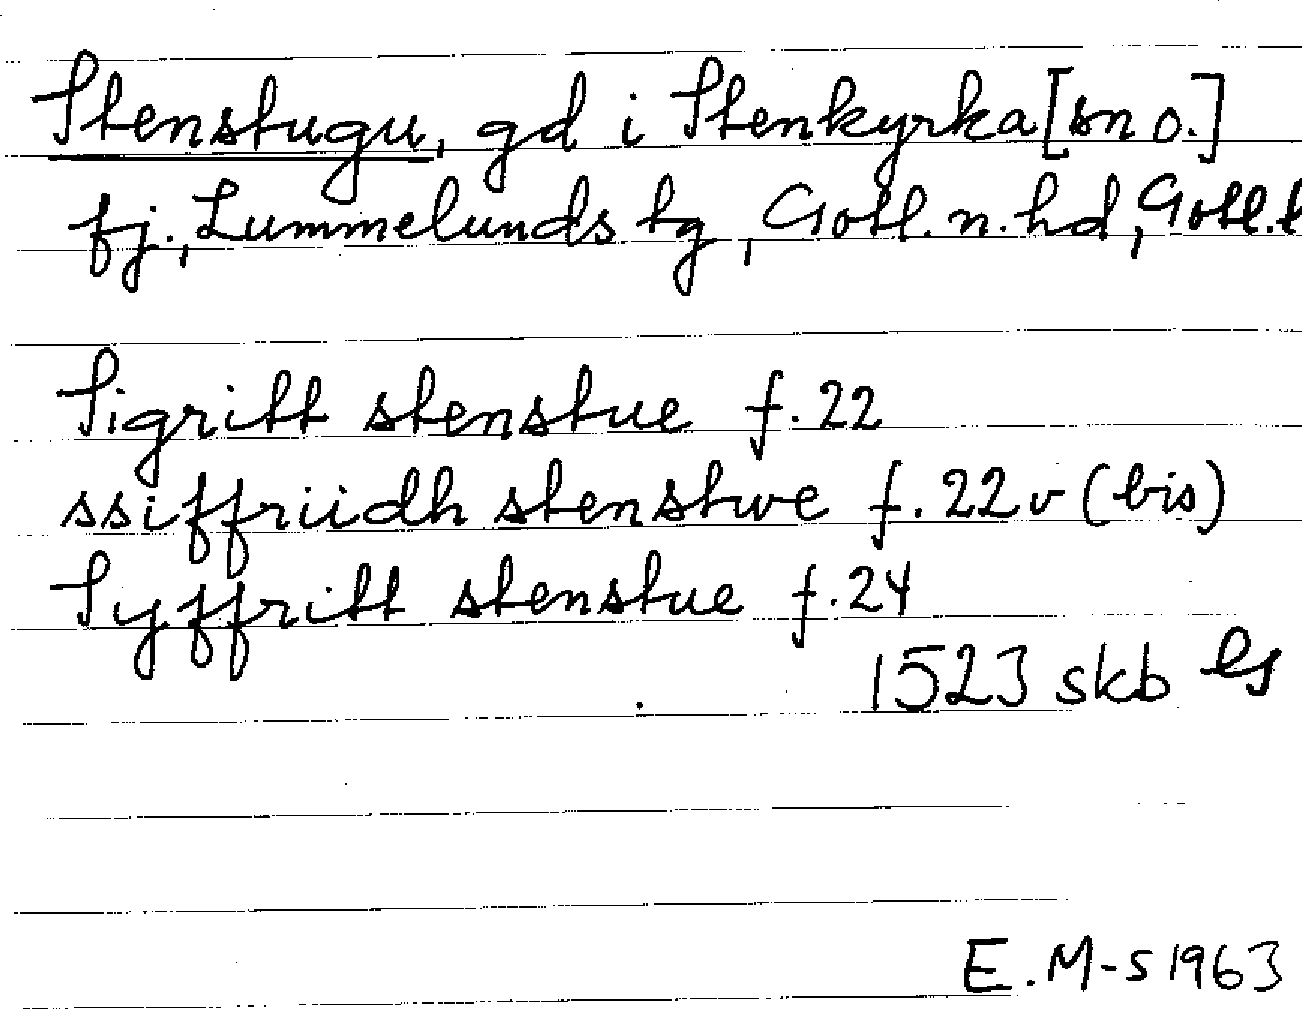 Stenstugu, gd i Stenkyrka [sn o.]
fj., Lummelunds tg, Gotl. n. hd, Gotl. l
Sigritt stenstue f. 22
ssiffriidh stenstwe f. 22 v (bis)
Syffritt stenstue f. 24
1523 skb
E. M-s 1963